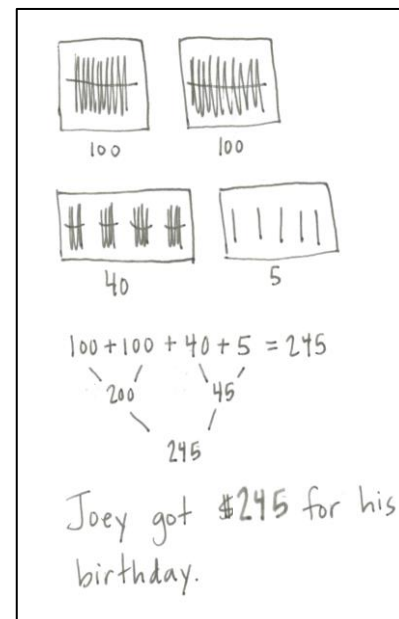 100 100
40 5
100 + 100 + 40 + 5 = 245
200 45
245
Joey got $245 for his
birthday.